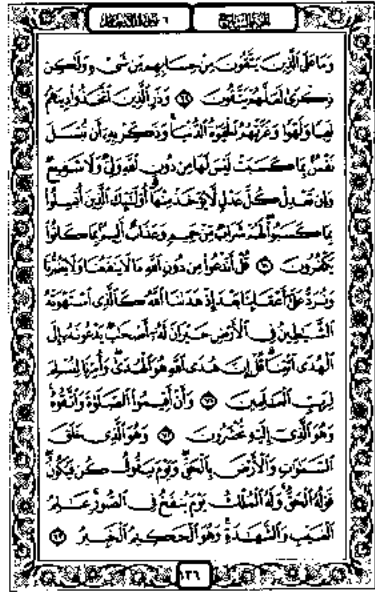 الجزء السابع ٦ سورة الأنعام
وَمَا عَلَى ٱلَّذِينَ يَتَّقُونَ مِنْ حِسَابِهِم مِّن شَىْءٍ وَلَٰكِن
ذِكْرَىٰ لَعَلَّهُمْ يَتَّقُونَ ٦٩ وَذَرِ ٱلَّذِينَ ٱتَّخَذُوا۟ دِينَهُمْ
لَعِبًا وَلَهْوًا وَغَرَّتْهُمُ ٱلْحَيَوٰةُ ٱلدُّنْيَا وَذَكِّرْ بِهِۦٓ أَن تُبْسَلَ
نَفْسٌۢ بِمَا كَسَبَتْ لَيْسَ لَهَا مِن دُونِ ٱللَّهِ وَلِىٌّ وَلَا شَفِيعٌ
وَإِن تَعْدِلْ كُلَّ عَدْلٍ لَّا يُؤْخَذْ مِنْهَآ أُو۟لَٰٓئِكَ ٱلَّذِينَ أُبْسِلُوا۟
بِمَا كَسَبُوا۟ لَهُمْ شَرَابٌ مِّنْ حَمِيمٍ وَعَذَابٌ أَلِيمٌۢ بِمَا كَانُوا۟
يَكْفُرُونَ ٧٠ قُلْ أَنَدْعُوا۟ مِن دُونِ ٱللَّهِ مَا لَا يَنفَعُنَا وَلَا يَضُرُّنَا
وَنُرَدُّ عَلَىٰٓ أَعْقَابِنَا بَعْدَ إِذْ هَدَىٰنَا ٱللَّهُ كَٱلَّذِى ٱسْتَهْوَتْهُ
ٱلشَّيَٰطِينُ فِى ٱلْأَرْضِ حَيْرَانَ لَهُۥٓ أَصْحَٰبٌ يَدْعُونَهُۥٓ إِلَى
ٱلْهُدَى ٱئْتِنَا قُلْ إِنَّ هُدَى ٱللَّهِ هُوَ ٱلْهُدَىٰ وَأُمِرْنَا لِنُسْلِمَ
لِرَبِّ ٱلْعَٰلَمِينَ ٧١ وَأَنْ أَقِيمُوا۟ ٱلصَّلَوٰةَ وَٱتَّقُوهُ
وَهُوَ ٱلَّذِىٓ إِلَيْهِ تُحْشَرُونَ ٧٢ وَهُوَ ٱلَّذِى خَلَقَ
ٱلسَّمَٰوَٰتِ وَٱلْأَرْضَ بِٱلْحَقِّ وَيَوْمَ يَقُولُ كُن فَيَكُونُ
قَوْلُهُ ٱلْحَقُّ وَلَهُ ٱلْمُلْكُ يَوْمَ يُنفَخُ فِى ٱلصُّورِ عَٰلِمُ
ٱلْغَيْبِ وَٱلشَّهَٰدَةِ وَهُوَ ٱلْحَكِيمُ ٱلْخَبِيرُ ٧٣
١٣٦